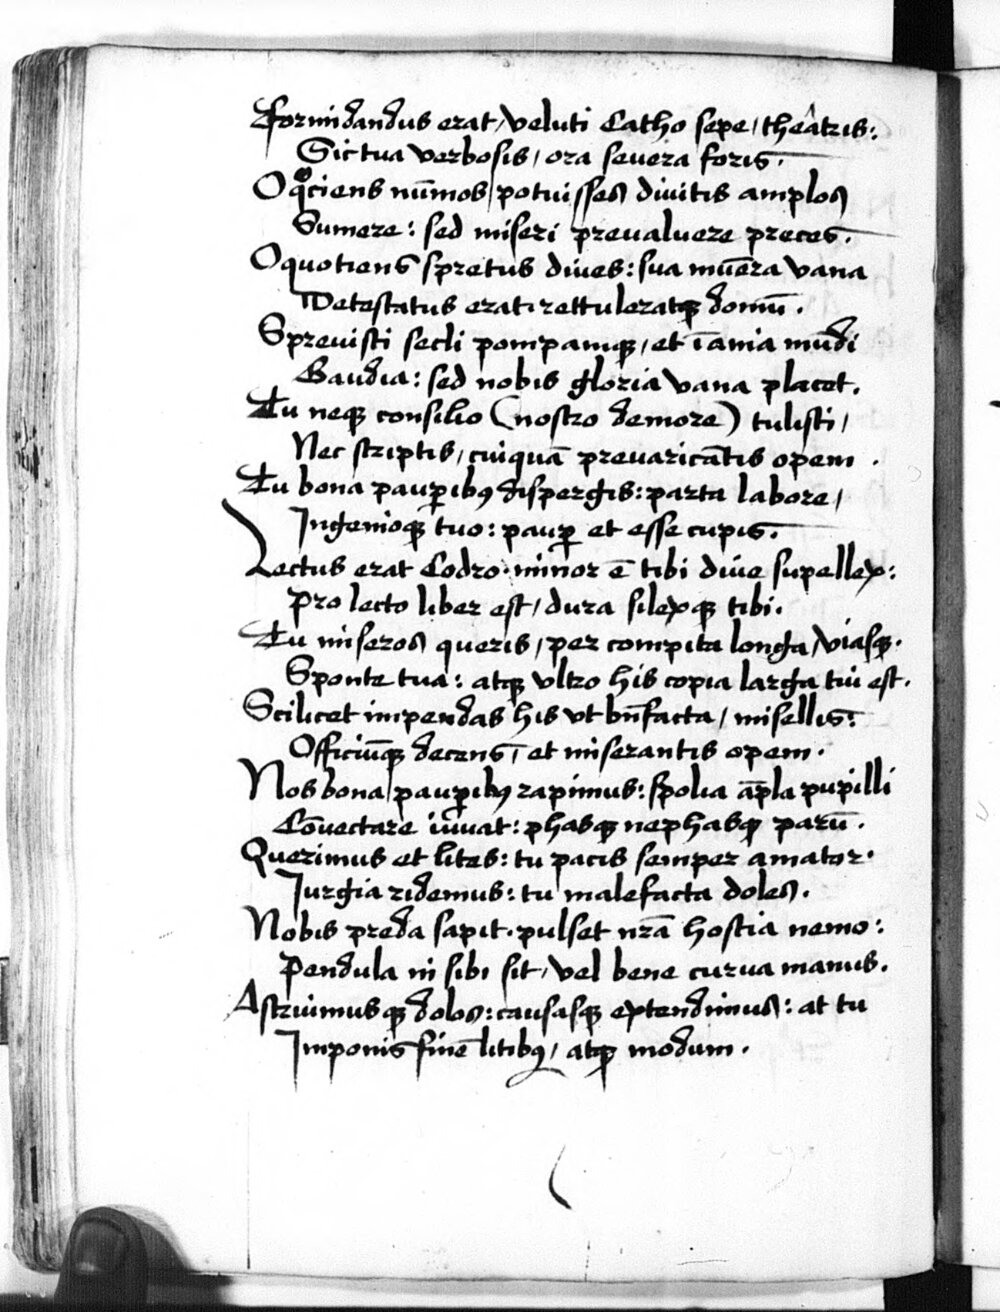 Formidandus erat, veluti Catho sepe, theâtris:
Sic tua verbosis, ora severa foris.
O qͦciens nūmos potuisses divitis amplos
Sumere: sed miseri prevaluere preces.
O quotiens spretus dives: sua mūera vana
Detestatus erat. rettuleratqꝫ domū.
Sprevisti secli pompamqꝫ, et īania mūdi
Gaudia: sed nobis gloria vana placet.
Tu neqꝫ consilio (nostro demore) tulisti,
Nec scriptis, cuiquā prevaricātis opem.
Tu bona paupibꝫ dispergis: parta labore,
Ingenioqꝫ tuo: paup et esse cupis.
Lectus erat Codro. minor ē tibi dive supellex:
Pro lecto liber est, dura silexqꝫ tibi.
Tu miseros queris, per compita longa, viasqꝫ.
Sponte tua: atqꝫ vltro his copia larga tui est.
Scilicet impendas his vt bn̄facta, misellis:
Officiūqꝫ decens, et miserantis opem.
Nos bona paupibꝫ rapimus: spolia āpla pupilli
Cōvectare iuvat: phasqꝫ nephasqꝫ parū.
Querimus et lites: tu pacis semper amator.
Jurgia ridemus: tu malefacta doles.
Nobis preda sapit. pulset nr̄a hostia nemo:
Pendula ni sibi sit, vel bene curva manus.
Astruimusqꝫ dolos: causasqꝫ extendimus: at tu
Imponis finē litibꝫ, atqꝫ modum.